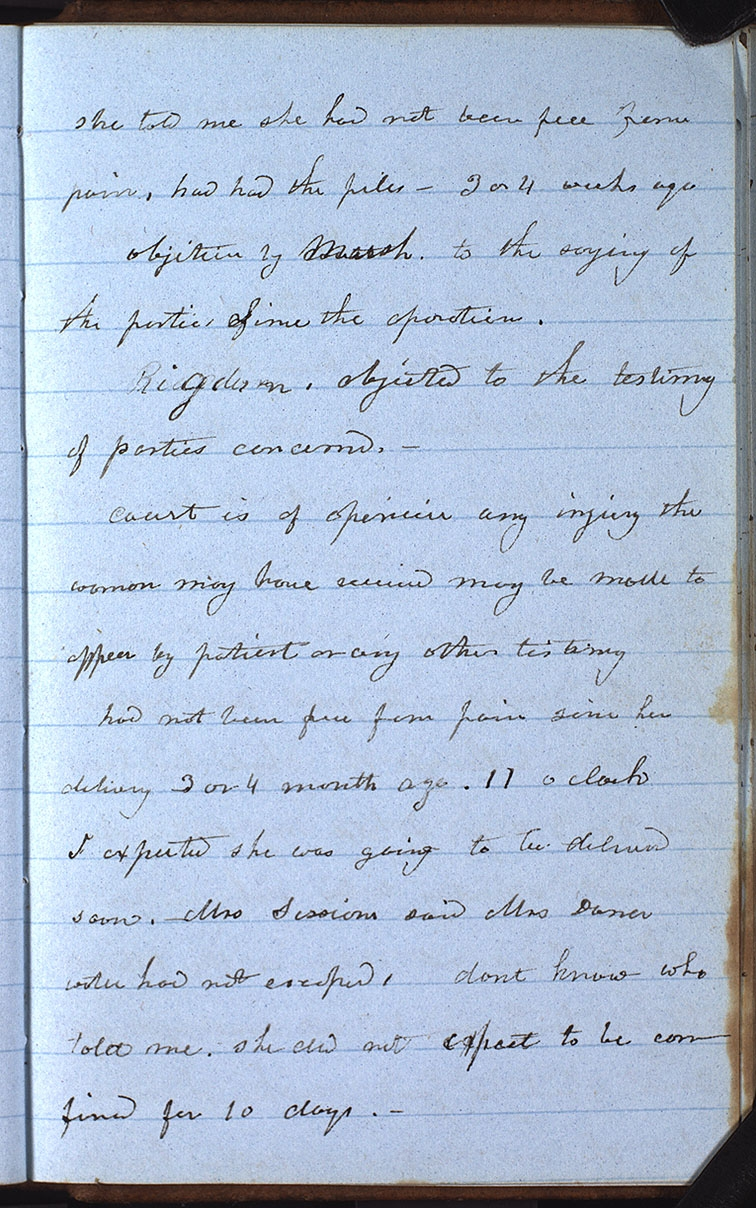 she told me she had not been free from
pain, had had the piles - 3 or 4 weeks ago
objection by Marsh. to the saying of
the parties since the operation.
Rigdon, objected to the testimny
of parties concernd. -
court is of opinion any injury the
woman may have received may be made to
appear by patient or any other testimny
had not been free from pain since her
delivery 3 or 4 month ago. 11 o clock
I expected she was going to be deliverd
soon. Mrs Sessions said Mrs Dana
water had not escaped, dont know who
told me. she did not expect to be con
fined for 10 days. -